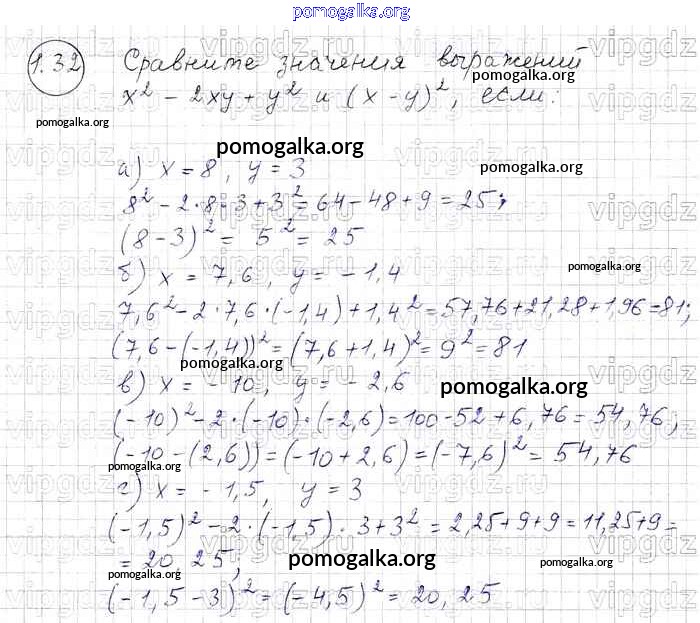 pomogalka.org
1.32 Сравните значения выражений
pomogalka.org
x² - 2xy + y² и (x - y)², если:
pomogalka.org
pomogalka.org
а) x = 8, y = 3
pomogalka.org
8² - 2·8·3 + 3² = 64 - 48 + 9 = 25;
(8 - 3)² = 5² = 25
б) x = 7,6, y = -1,4
pomogalka.org
7,6² - 2·7,6·(-1,4) + 1,4² = 57,76 + 21,28 + 1,96 = 81;
(7,6 - (-1,4))² = (7,6 + 1,4)² = 9² = 81
pomogalka.org
в) x = -10, y = -2,6
pomogalka.org
(-10)² - 2·(-10)·(-2,6) = 100 - 52 + 6,76 = 54,76;
(-10 - (2,6)) = (-10 + 2,6) = (-7,6)² = 54,76
pomogalka.org
г) x = -1,5, y = 3
(-1,5)² - 2·(-1,5)·3 + 3² = 2,25 + 9 + 9 = 11,25 + 9 =
= 20,25;
pomogalka.org
pomogalka.org
pomogalka.org
(-1,5 - 3)² = (-4,5)² = 20,25